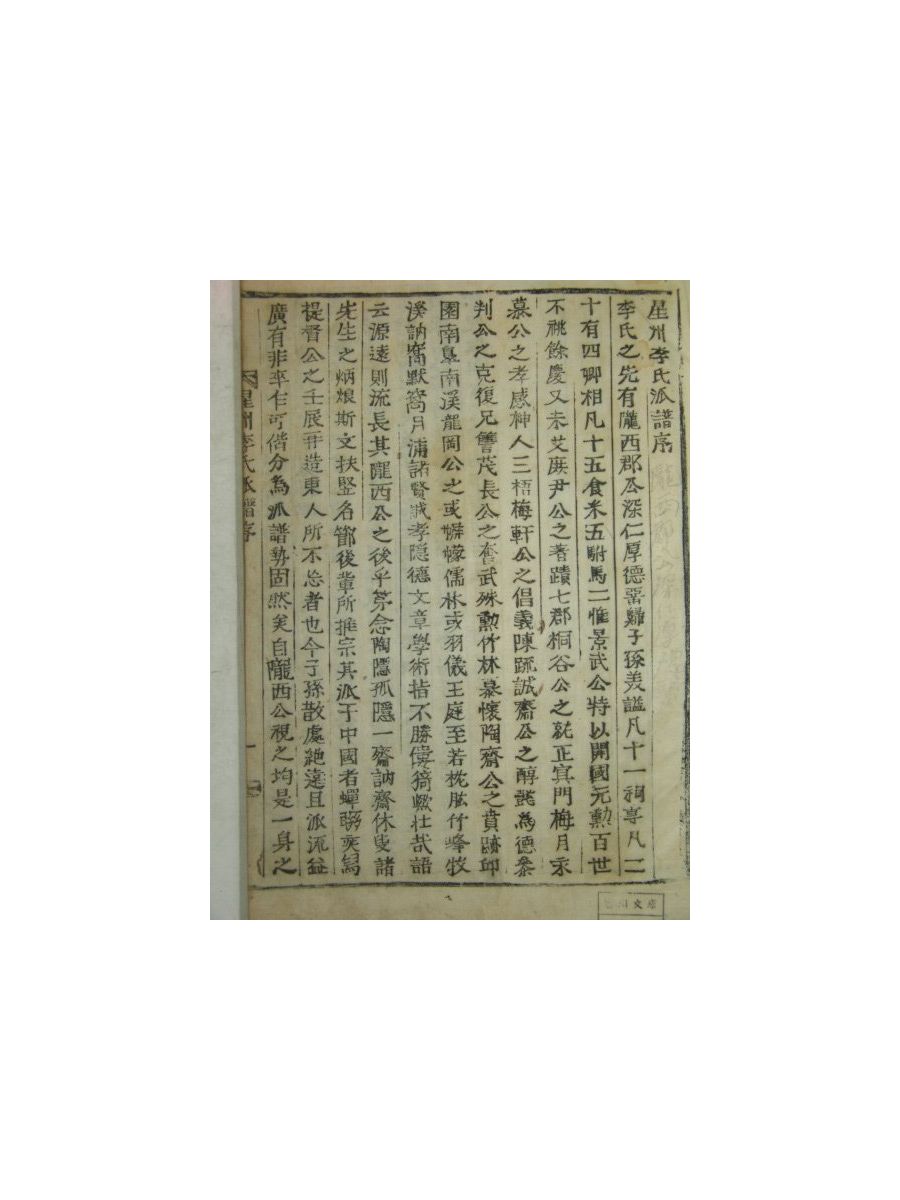 星州李氏派譜序
李氏之先有隴西郡公深仁厚德啚歸子孫美謚凡十一祠享凡二
十有四卿相凡十五食采五駙馬二惟景武公特以開國元勳百世
不祧餘慶又未艾庶尹公之著蹟七郡桐谷公之就正寅門梅月永
慕公之孝感神人三梧梅軒公之倡義陳疏誠齋公之醇懿為德叅
判公之克復兄讐茂長公之奮武殊勳竹林慕懷陶齋公之賁跡邱
園南臯南溪龍岡公之或幈幪儒林或羽儀王庭至若枕肱竹峰牧
溪訥窩默窩月浦諸賢誠孝隱德文章學術指不勝僂猗歟壮哉語
云源遠則流長其隴西公之後乎第念陶隱孤隱一齋訥齋休叟諸
先生之炳烺斯文扶竪名節後軰所推宗其派于中國者蟬聯奕舄
提督公之壬辰再造東人所不忘者也今子孫散處絶遠且派流益
廣有非卒乍可偕分為派譜勢固然矣自隴西公視之均是一身之
星州李氏派譜序
一